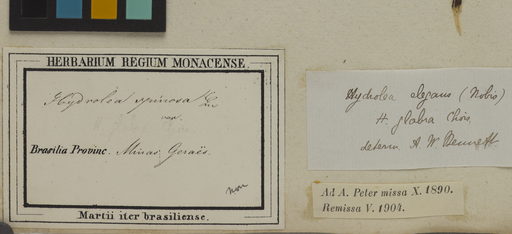 HERBARIUM REGIUM MONACENSE.
Hydrolea spinosa Lin
var.
Brasilia Provinc. Minas Geraës.
non
Martii iter brasiliense.
Hydrolea elegans (Nobis)
H. glabra Chois.
determ. A. W. Bennett.
Ad A. Peter missa X. 1890.
Remissa V. 1904.